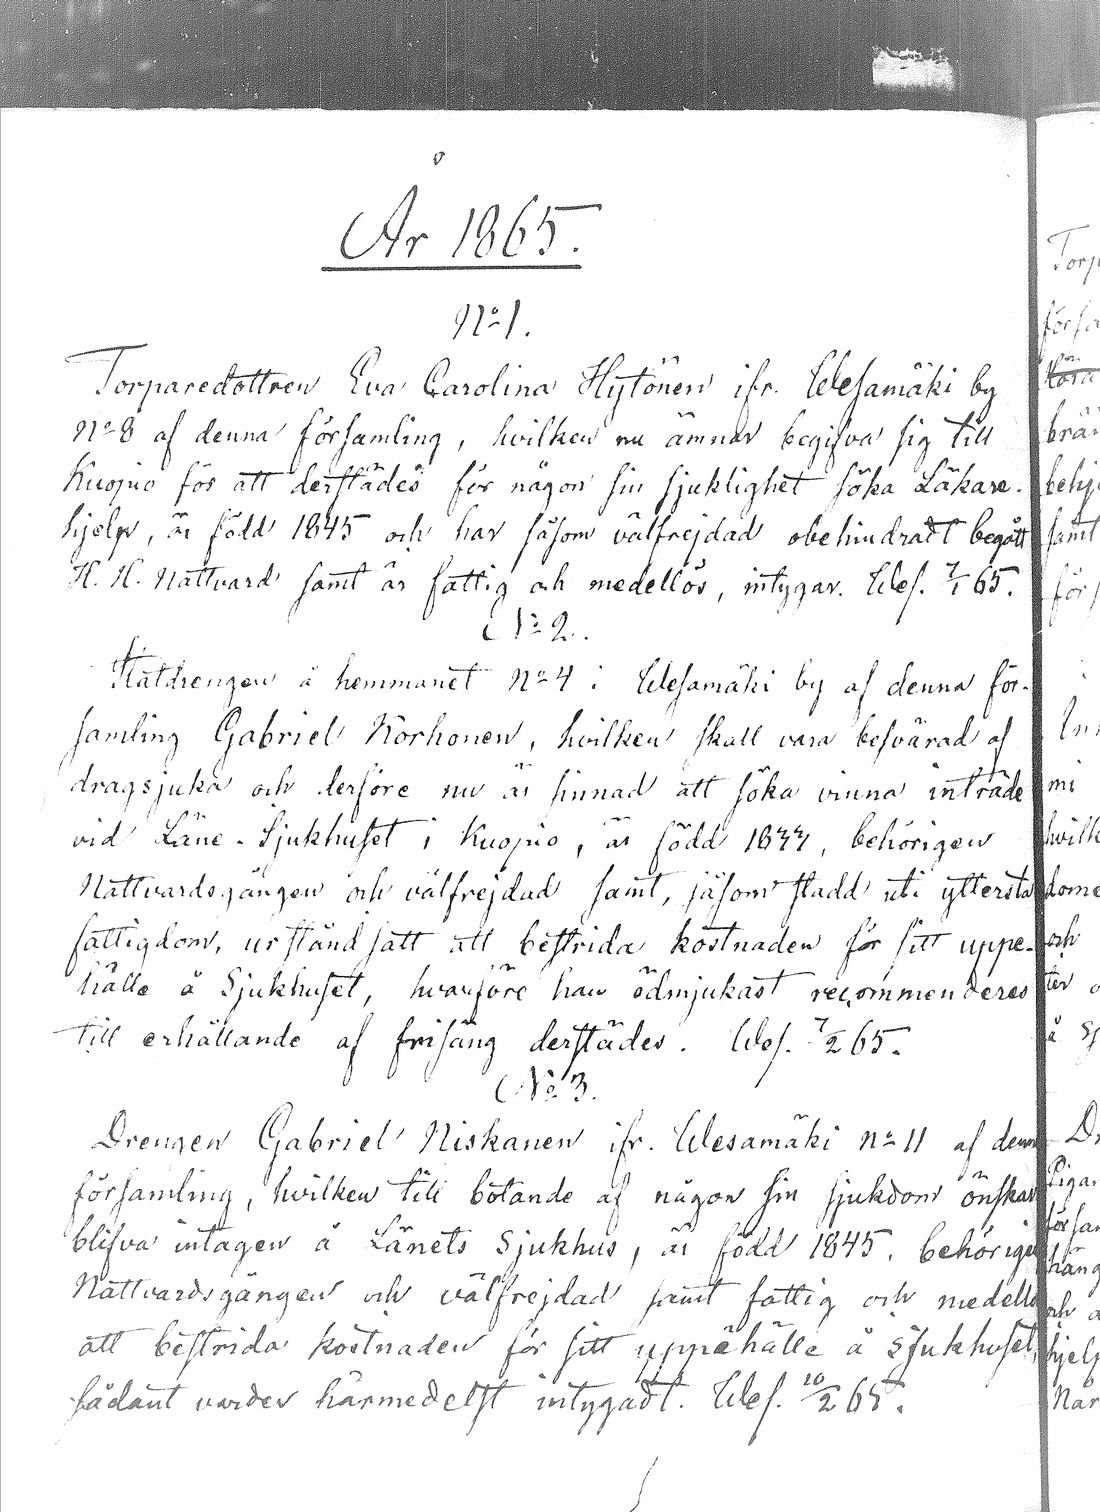 År 1865.
No 1.
Torparedottren Eva Carolina Hytönen ifr. Wesamäki by
No 8 af denna församling, hvilken nu ämnar begifva sig till
Kuopio för att derstädes för någon sin sjuklighet söka Läkare-
hjelp, är född 1845 och har såsom välfrejdad obehindradt begått
H. H. Nattvard samt är fattig och medellös, intygar. Wes. 7/1 65.
No 2.
Statdrengen å hemmanet No 4 i Wesamäki by af denna för-
samling Gabriel Korhonen, hvilken skall vara besvärad af
dragsjuka och derföre nu är sinnad att söka vinna inträde
vid Läne-Sjukhuset i Kuopio, är född 1844, behörigen
Nattvardsgången och välfrejdad samt, såsom stadd uti yttersta
fattigdom, urståndsatt att bestrida kostnaden för sitt uppe-
hälle å Sjukhuset, hvarföre han ödmjukast recommenderes
till erhållande af frisäng derstädes. Wes. 7/2 65.
No 3.
Drengen Gabriel Niskanen ifr. Wesamäki No 11 af denna
församling, hvilken till botande af någon sin sjukdom önskar
blifva intagen å Länets Sjukhus, är född 1845, behörigen
Nattvardsgången och välfrejdad samt fattig och medellös
att bestrida kostnaden för sitt uppehälle å sjukhuset,
sådant varder härmedelst intygadt. Wes. 10/2 65.